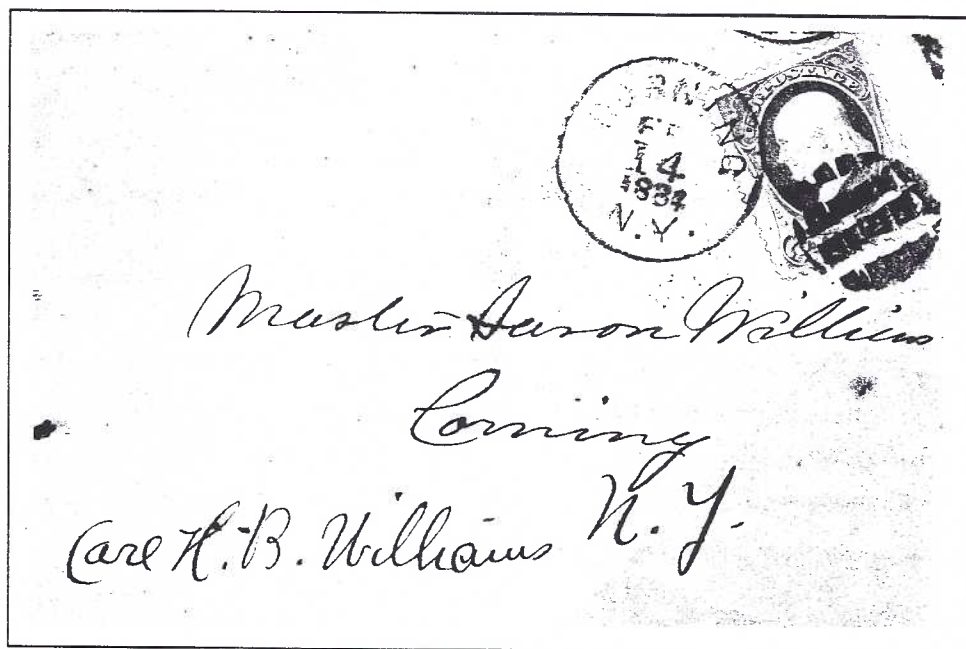 CORNING
14
1884
N.Y.
Master Aaron Williams
Corning
N. Y.
Care H. B. Williams